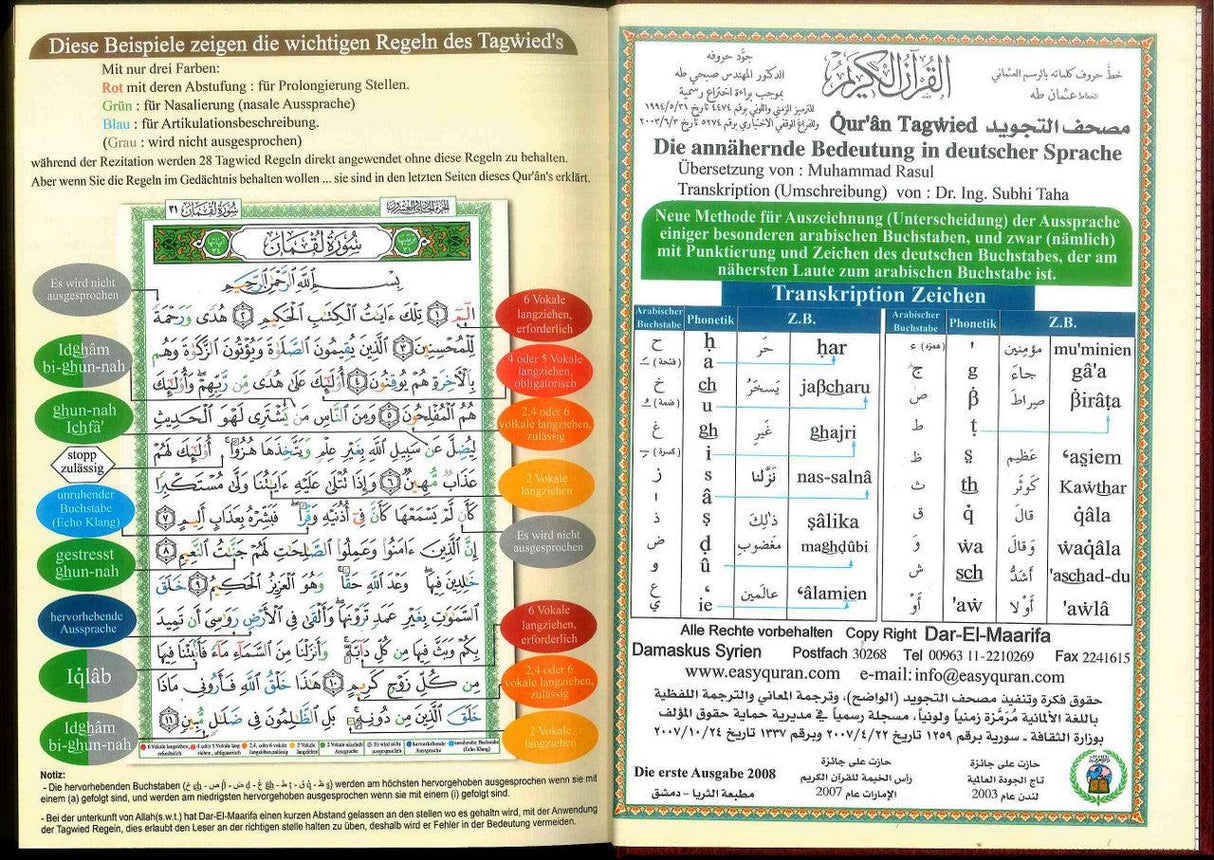 Diese Beispiele zeigen die wichtigen Regeln des Tagẇied's
Mit nur drei Farben:
Rot mit deren Abstufung : für Prolongierung Stellen.
Grün : für Nasalierung (nasale Aussprache)
Blau : für Artikulationsbeschreibung.
(Grau : wird nicht ausgesprochen)
während der Rezitation werden 28 Tagwied Regeln direkt angewendet ohne diese Regeln zu behalten.
Aber wenn Sie die Regeln im Gedächtnis behalten wollen ... sie sind in den letzten Seiten dieses Qur'ân's erklärt.
سُورَةُ لُقْمَان ٣١
الجزء الحادي والعشرون
سُورَةُ لُقْمَان
بِسْمِ اللَّهِ الرَّحْمَٰنِ الرَّحِيمِ
الٓمٓ ١ تِلْكَ ءَايَٰتُ ٱلْكِتَٰبِ ٱلْحَكِيمِ ٢ هُدًى وَرَحْمَةً
لِّلْمُحْسِنِينَ ٣ ٱلَّذِينَ يُقِيمُونَ ٱلصَّلَوٰةَ وَيُؤْتُونَ ٱلزَّكَوٰةَ وَهُم
بِٱلْءَاخِرَةِ هُمْ يُوقِنُونَ ٤ أُو۟لَٰٓئِكَ عَلَىٰ هُدًى مِّن رَّبِّهِمْ وَأُو۟لَٰٓئِكَ
هُمُ ٱلْمُفْلِحُونَ ٥ وَمِنَ ٱلنَّاسِ مَن يَشْتَرِى لَهْوَ ٱلْحَدِيثِ
لِيُضِلَّ عَن سَبِيلِ ٱللَّهِ بِغَيْرِ عِلْمٍ وَيَتَّخِذَهَا هُزُوًا أُو۟لَٰٓئِكَ لَهُمْ
عَذَابٌ مُّهِينٌ ٦ وَإِذَا تُتْلَىٰ عَلَيْهِ ءَايَٰتُنَا وَلَّىٰ مُسْتَكْبِرًا
كَأَن لَّمْ يَسْمَعْهَا كَأَنَّ فِىٓ أُذُنَيْهِ وَقْرًا فَبَشِّرْهُ بِعَذَابٍ أَلِيمٍ ٧
إِنَّ ٱلَّذِينَ ءَامَنُوا۟ وَعَمِلُوا۟ ٱلصَّٰلِحَٰتِ لَهُمْ جَنَّٰتُ ٱلنَّعِيمِ ٨
خَٰلِدِينَ فِيهَا وَعْدَ ٱللَّهِ حَقًّا وَهُوَ ٱلْعَزِيزُ ٱلْحَكِيمُ ٩ خَلَقَ
ٱلسَّمَٰوَٰتِ بِغَيْرِ عَمَدٍ تَرَوْنَهَا وَأَلْقَىٰ فِى ٱلْأَرْضِ رَوَٰسِىَ أَن تَمِيدَ
بِكُمْ وَبَثَّ فِيهَا مِن كُلِّ دَآبَّةٍ وَأَنزَلْنَا مِنَ ٱلسَّمَآءِ مَآءً فَأَنۢبَتْنَا فِيهَا
مِن كُلِّ زَوْجٍ كَرِيمٍ ١٠ هَٰذَا خَلْقُ ٱللَّهِ فَأَرُونِى مَاذَا
خَلَقَ ٱلَّذِينَ مِن دُونِهِۦ بَلِ ٱلظَّٰلِمُونَ فِى ضَلَٰلٍ مُّبِينٍ ١١
Es wird nicht
ausgesprochen
Idghâm
bi-ghun-nah
ghun-nah
Ichfâ'
stopp
zulässig
unruhender
Buchstabe
(Echo Klang)
gestresst
ghun-nah
hervorhebende
Aussprache
Iq̇lâb
Idghâm
bi-ghun-nah
6 Vokale
langziehen,
erforderlich
4 oder 5 Vokale
langziehen,
obligatorisch
2,4 oder 6
volkale langziehen,
zulässig
2 Vokale
langziehen
Es wird nicht
ausgesprochen
6 Vokale
langziehen,
erforderlich
2,4 oder 6
vokale langziehen,
zulässig
2 Vokale
langziehen
Notiz:
- Die hervorhebenden Buchstaben werden am höchsten hervorgehoben ausgesprochen wenn sie mit
einem (a) gefolgt sind, und werden am niedrigsten hervorgehoben ausgesprochen wenn sie mit einem (i) gefolgt sind.
- Bei der unterkunft von Allah(s.w.t.) hat Dar-El-Maarifa einen kurzen Abstand gelassen an den stellen wo es gehaltn wird, mit der Anwendung
der Tagwied Regeln, dies erlaubt den Leser an der richtigen stelle halten zu üben, deshalb wird er Fehler in der Bedeutung vermeiden.
القرآن الكريم
خطَّ حروف كلماته بالرسم العثماني
الخطاط عثمان طه
جوَّد حروفه
الدكتور المهندس صبحي طه
بموجب براءة اختراع رسمية
للترميز الزمني واللوني برقم ٤٤٧٤ تاريخ ١٩٩٤/٥/٣١
وللفراغ الوقفي الاختياري برقم ٥٢٧٤ تاريخ ٢٠٠٣/٦/٣
Q̇ur'ân Tagẇied مصحف التجويد
Die annähernde Bedeutung in deutscher Sprache
Übersetzung von : Muhammad Rasul
Transkription (Umschreibung) von : Dr. Ing. Subhi Taha
Neue Methode für Auszeichnung (Unterscheidung) der Aussprache
einiger besonderen arabischen Buchstaben, und zwar (nämlich)
mit Punktierung und Zeichen des deutschen Buchstabes, der am
nähersten Laute zum arabischen Buchstabe ist.
Transkription Zeichen
Arabischer Buchstabe Phonetik Z.B. Arabischer Buchstabe Phonetik Z.B.
ح ḥ حَر ḥar
(فتحة) a
خ ch يَسخَرُ jaβcharu
(ضمة) u
غ gh غَير ghajri
(كسرة) i
ز s نَزَّلنا nas-salnâ
ا â
ذ ṣ ذٰلِكَ ṣâlika
ض ḍ مَغضوب maghḍûbi
و û
ع ʻ عالَمين ʻâlamien
ي ie
ء (همزة) ' مؤمنين mu'minien
ج g جاءَ gâ'a
ص β̣ صِراطَ β̣irâṭa
ط ṭ
ظ ṣ̱ عَظيم ʻaṣ̱iem
ث th كَوثَر Kaẇthar
ق q̇ قالَ q̇âla
وَ ẇa وَقالَ ẇaq̇âla
ش sch أَشَدُّ 'aschad-du
أَوْ 'aẇ أَوْلا 'aẇlâ
Alle Rechte vorbehalten Copy Right Dar-El-Maarifa
Damaskus Syrien Postfach 30268 Tel 00963 11-2210269 Fax 2241615
www.easyquran.com e-mail:info@easyquran.com
حقوق فكرة وتنفيذ مصحف التجويد (الواضح)، وترجمة المعاني والترجمة اللفظية
باللغة الألمانية مُرَمَّزة زمنياً ولونياً، مسجلة رسمياً في مديرية حماية حقوق المؤلف
بوزارة الثقافة - سورية برقم ١٢٥٩ تاريخ ٢٠٠٧/٤/٢٢ وبرقم ١٣٣٧ تاريخ ٢٠٠٧/١٠/٢٤
Die erste Ausgabe 2008
مطبعة الثريا - دمشق
حازت على جائزة
رأس الخيمة للقرآن الكريم
الإمارات عام 2007
حازت على جائزة
تاج الجودة العالمية
لندن عام 2003